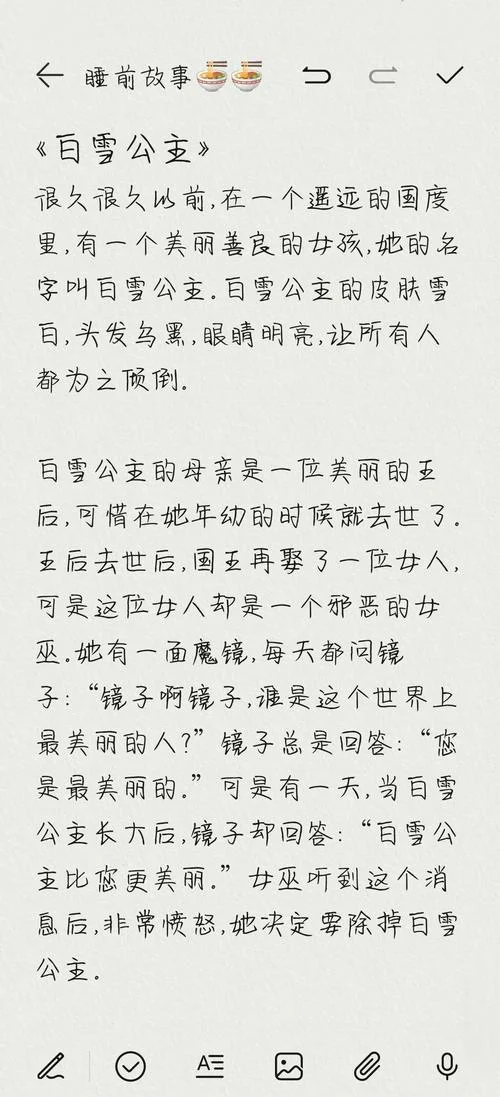 睡前故事🍜🍜
《白雪公主》
很久很久以前,在一个遥远的国度
里,有一个美丽善良的女孩,她的名
字叫白雪公主.白雪公主的皮肤雪
白,头发乌黑,眼睛明亮,让所有人
都为之倾倒。
白雪公主的母亲是一位美丽的王
后,可惜在她年幼的时候就去世了。
王后去世后,国王再娶了一位女人,
可是这位女人却是一个邪恶的女
巫.她有一面魔镜,每天都问镜
子:“镜子啊镜子,谁是这个世界上
最美丽的人?”镜子总是回答:“您
是最美丽的.”可是有一天,当白雪
公主长大后,镜子却回答:“白雪公
主比您更美丽.”女巫听到这个消
息后,非常愤怒,她决定要除掉白雪
公主。